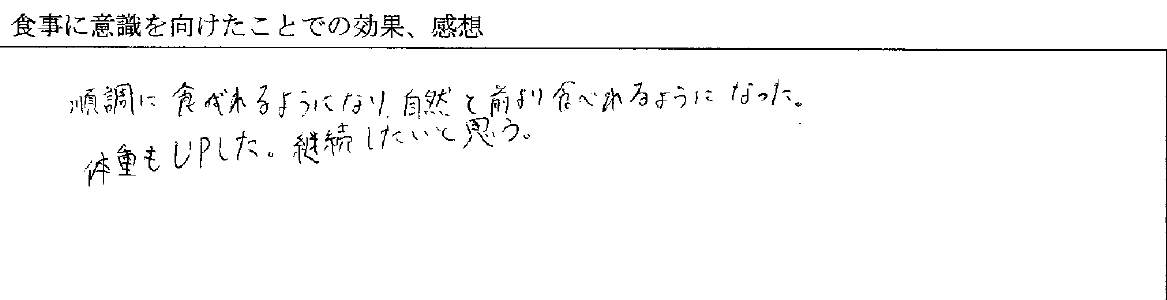 食事に意識を向けたことでの効果、感想
順調に食べれるようになり自然と前より食べれるようになった。
体重もUPした。継続したいと思う。